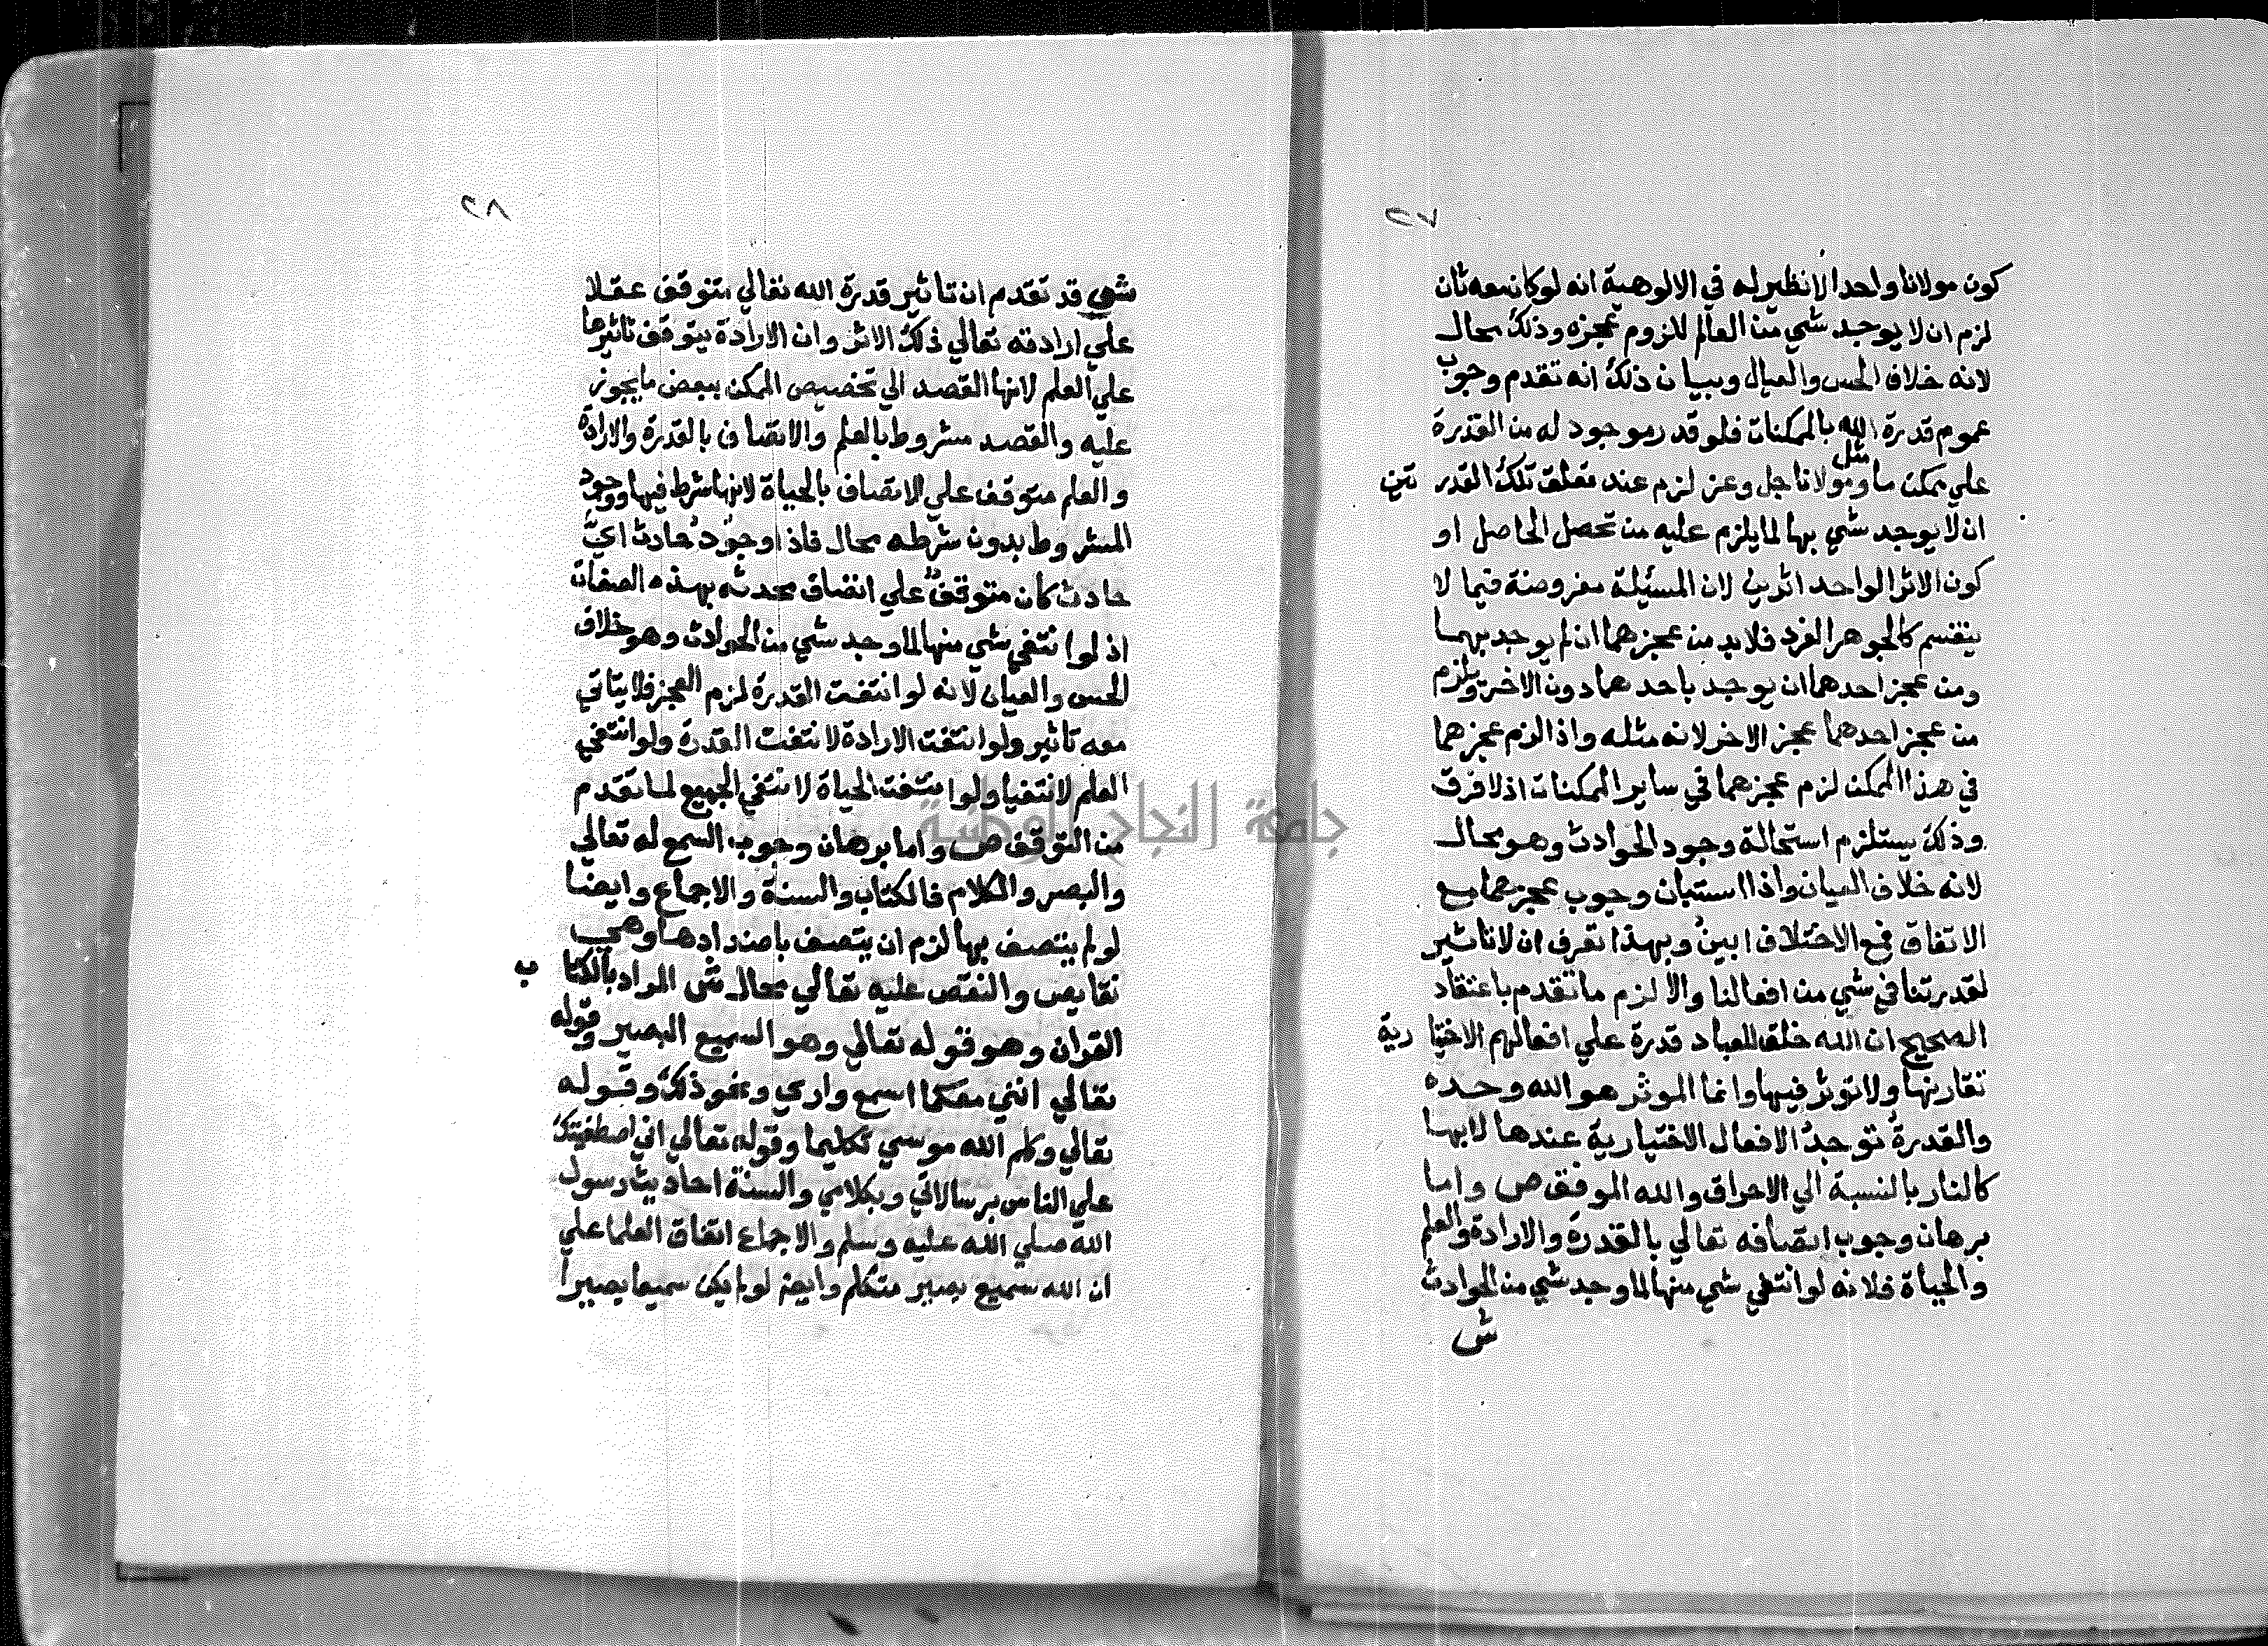 ٢٧
كون مولانا واحدا لا نظير له في الالوهية انه لو كان معه ثان
لزم ان لا يوجد شي من العالم للزوم عجزه وذلك محال
لانه خلاف الحس والعيال وبيان ذلك انه تقدم وجوب
عموم قدرة الله بالممكنات فلو قدر موجود له من القدرة
علي ممكن ما مثل ومولانا جل وعز لزم عند تعلق تلك القدر تين
ان لا يوجد شي بها لما يلزم عليه من تحصل الحاصل او
كون الاثر الواحد اثرين لان المسئلة مفروضة فيما لا
ينقسم كالجوهر الفرد فلا بد من عجزهما ان لم يوجد بهما
ومن عجز احدهما ان يوجد باحدهما دون الاخر ويلزم
من عجز احدهما عجز الاخر لانه مثله واذا لزم عجزهما
في هذا الممكن لزم عجزهما في ساير الممكنات اذ لا فرق
وذلك يستلزم استحالة وجود الحوادث وهو محال
لانه خلاف العيان واذا استبان وجوب عجزهما مع
الاتفاق فمع الاختلاف ابين وبهذا تعرف ان لا تاثير
لقدرتنا في شي من افعالنا والا لزم ما تقدم باعتقاد
الصحيح ان الله خلق للعباد قدرة علي افعالهم الاختيا رية
تقارنها ولا توثر فيها وانما الموثر هو الله وحده
والقدرة توجد الافعال الاختيارية عندها لا بها
كالنار بالنسبة الي الاحراق والله الموفق ص واما
برهان وجوب اتصافه تعالي بالقدرة والارادة والعلم
والحياة فلانه لو انتفي شي منها لما وجد شي من الحوادث
ش
٢٨
شي قد تقدم ان تاثير قدرة الله تعالي متوقف عقلا
علي ارادته تعالي ذلك الاثر وان الارادة يتوقف تاثيرها
علي العلم لانها القصد الي تخصيص الممكن ببعض ما يجوز
عليه والقصد مشروط بالعلم والاتصاف بالقدرة والارادة
والعلم متوقف علي الاتصاف بالحياة لانها شرط فيها ووجود
المشروط بدون شرطه محال فاذا وجود حادث اي
حادث كان متوقف علي اتصاف محدثه بهذه الصفات
اذ لو انتفي شي منها لما وجد شي من الحوادث وهو خلاف
الحس والعيان لانه لو انتفت القدرة لزم العجز فلا يتاتي
معه تاثير ولو انتفت الارادة لانتفت القدرة ولو انتفي
العلم لانتفيا ولو انتفت الحياة لانتفي الجميع لما تقدم
من التوقف ص واما برهان وجوب السمع له تعالي
والبصر والكلام فالكتاب والسنة والاجماع وايضا
لو لم يتصف بها لزم ان يتصف باضدادها وهي
نقايص والنقص عليه تعالي محال ش المراد بالكتا ب
القران وهو قوله تعالي وهو السميع البصير وقوله
تعالي انني معكما اسمع واري ونحو ذلك وقوله
تعالي وكلم الله موسي تكليما وقوله تعالي اني اصطفيتك
علي الناس برسالاتي وبكلامي والسنة احاديث رسول
الله صلي الله عليه وسلم والاجماع اتفاق العلما علي
ان الله سميع بصير متكلم وايضا لو لم يكن سميعا بصيرا
جامعة النجاح الوطنية